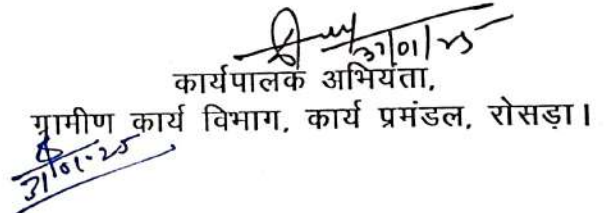 31/01/25
कार्यपालक अभियंता,
ग्रामीण कार्य विभाग, कार्य प्रमंडल, रोसड़ा।
31/01-25